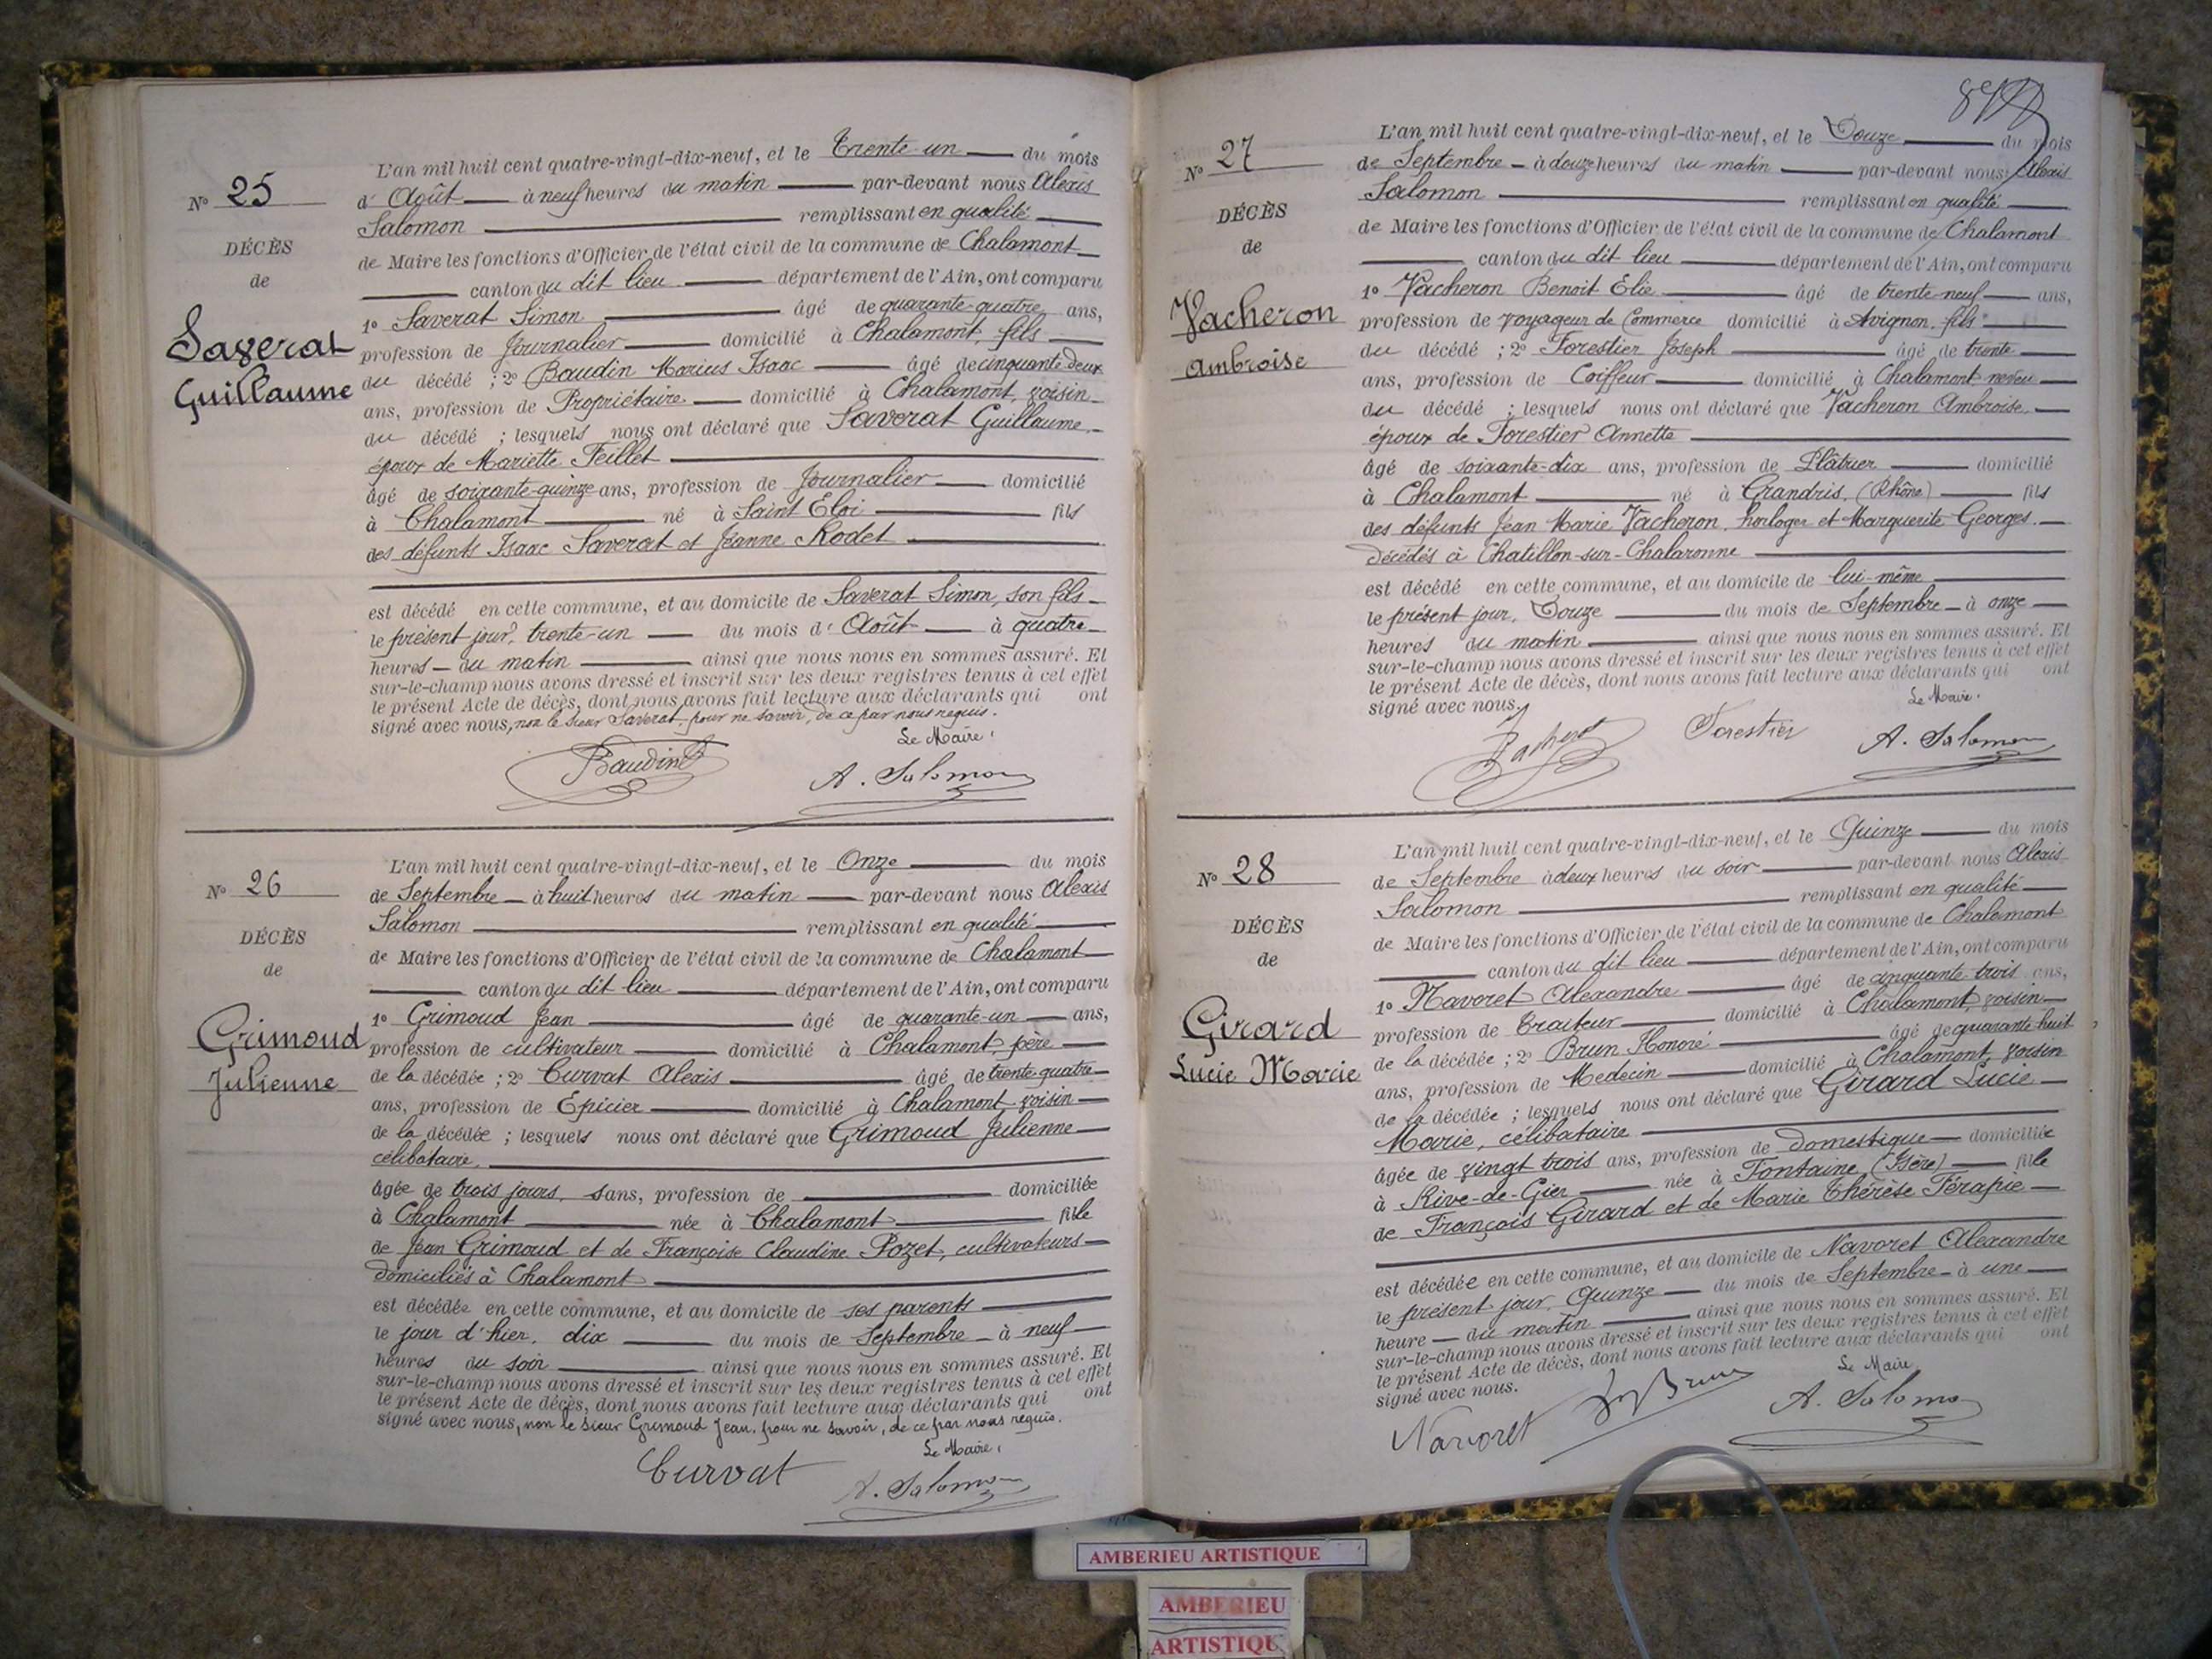 N° 25
DÉCÈS
de
Saverat
Guillaume
L'an mil huit cent quatre-vingt-dix-neuf, et le Trente-un du mois
d'Août à neuf heures du matin par-devant nous Alexis
Salomon remplissant en qualité
de Maire les fonctions d'Officier de l'état civil de la commune de Chalamont
canton du dit lieu département de l'Ain, ont comparu
1° Saverat Simon âgé de quarante-quatre ans,
profession de Journalier domicilié à Chalamont, fils
du décédé ; 2° Baudin Marius Isaac âgé de cinquante deux
ans, profession de Propriétaire domicilié à Chalamont, voisin
du décédé ; lesquels nous ont déclaré que Saverat Guillaume
époux de Mariette Feillet
âgé de soixante-quinze ans, profession de Journalier domicilié
à Chalamont né à Saint Eloi fils
des défunts Isaac Saverat et Jeanne Rodet
est décédé en cette commune, et au domicile de Saverat Simon, son fils
le présent jour, trente-un du mois d'Août à quatre
heures du matin ainsi que nous nous en sommes assuré. Et
sur-le-champ nous avons dressé et inscrit sur les deux registres tenus à cet effet
le présent Acte de décès, dont nous avons fait lecture aux déclarants qui ont
signé avec nous, non le sieur Saverat, pour ne savoir, de ce par nous requis.
Le Maire,
Baudin A. Salomon
N° 26
DÉCÈS
de
Grimoud
Julienne
L'an mil huit cent quatre-vingt-dix-neuf, et le Onze du mois
de Septembre à huit heures du matin par-devant nous Alexis
Salomon remplissant en qualité
de Maire les fonctions d'Officier de l'état civil de la commune de Chalamont
canton du dit lieu département de l'Ain, ont comparu
1° Grimoud Jean âgé de quarante-un ans,
profession de cultivateur domicilié à Chalamont, père
de la décédée ; 2° Curvat Alexis âgé de trente-quatre
ans, profession de Epicier domicilié à Chalamont voisin
de la décédée ; lesquels nous ont déclaré que Grimoud Julienne
célibataire,
âgée de trois jours, sans, profession de domiciliée
à Chalamont née à Chalamont fille
de Jean Grimoud et de Françoise Claudine Pozet, cultivateurs
domiciliés à Chalamont
est décédée en cette commune, et au domicile de ses parents
le jour d'hier, dix du mois de Septembre à neuf
heures du soir ainsi que nous nous en sommes assuré. Et
sur-le-champ nous avons dressé et inscrit sur les deux registres tenus à cet effet
le présent Acte de décès, dont nous avons fait lecture aux déclarants qui ont
signé avec nous, non le sieur Grimoud Jean, pour ne savoir, de ce par nous requis.
Le Maire,
Curvat A. Salomon
N° 27
DÉCÈS
de
Vacheron
Ambroise
L'an mil huit cent quatre-vingt-dix-neuf, et le Douze du mois
de Septembre à douze heures du matin par-devant nous Alexis
Salomon remplissant en qualité
de Maire les fonctions d'Officier de l'état civil de la commune de Chalamont
canton du dit lieu département de l'Ain, ont comparu
1° Vacheron Benoit Elie âgé de trente-neuf ans,
profession de voyageur de Commerce domicilié à Avignon, fils
du décédé ; 2° Forestier Joseph âgé de trente
ans, profession de Coiffeur domicilié à Chalamont neveu
du décédé ; lesquels nous ont déclaré que Vacheron Ambroise
époux de Forestier Annette
âgé de soixante-dix ans, profession de Plâtrier domicilié
à Chalamont né à Grandris, (Rhône) fils
des défunts Jean Marie Vacheron, horloger et Marguerite Georges
décédés à Chatillon-sur-Chalaronne
est décédé en cette commune, et au domicile de lui-même
le présent jour, Douze du mois de Septembre à onze
heures du matin ainsi que nous nous en sommes assuré. Et
sur-le-champ nous avons dressé et inscrit sur les deux registres tenus à cet effet
le présent Acte de décès, dont nous avons fait lecture aux déclarants qui ont
signé avec nous.
Le Maire,
Forestier A. Salomon
N° 28
DÉCÈS
de
Girard
Lucie Marie
L'an mil huit cent quatre-vingt-dix-neuf, et le Quinze du mois
de Septembre à deux heures du soir par-devant nous Alexis
Salomon remplissant en qualité
de Maire les fonctions d'Officier de l'état civil de la commune de Chalamont
canton du dit lieu département de l'Ain, ont comparu
1° Navoret Alexandre âgé de cinquante-trois ans,
profession de Traiteur domicilié à Chalamont, voisin
de la décédée ; 2° Brun Honoré âgé de quarante huit
ans, profession de Medecin domicilié à Chalamont, voisin
de la décédée ; lesquels nous ont déclaré que Girard Lucie
Marie, célibataire
âgée de vingt trois ans, profession de domestique domiciliée
à Rive-de-Gier née à Fontaine, (Isère) fille
de François Girard et de Marie Thérèse Térapie
est décédée en cette commune, et au domicile de Navoret Alexandre
le présent jour, Quinze du mois de Septembre à une
heure du matin ainsi que nous nous en sommes assuré. Et
sur-le-champ nous avons dressé et inscrit sur les deux registres tenus à cet effet
le présent Acte de décès, dont nous avons fait lecture aux déclarants qui ont
signé avec nous.
Le Maire,
Navoret Brun A. Salomon
AMBERIEU ARTISTIQUE
AMBERIEU
ARTISTIQU